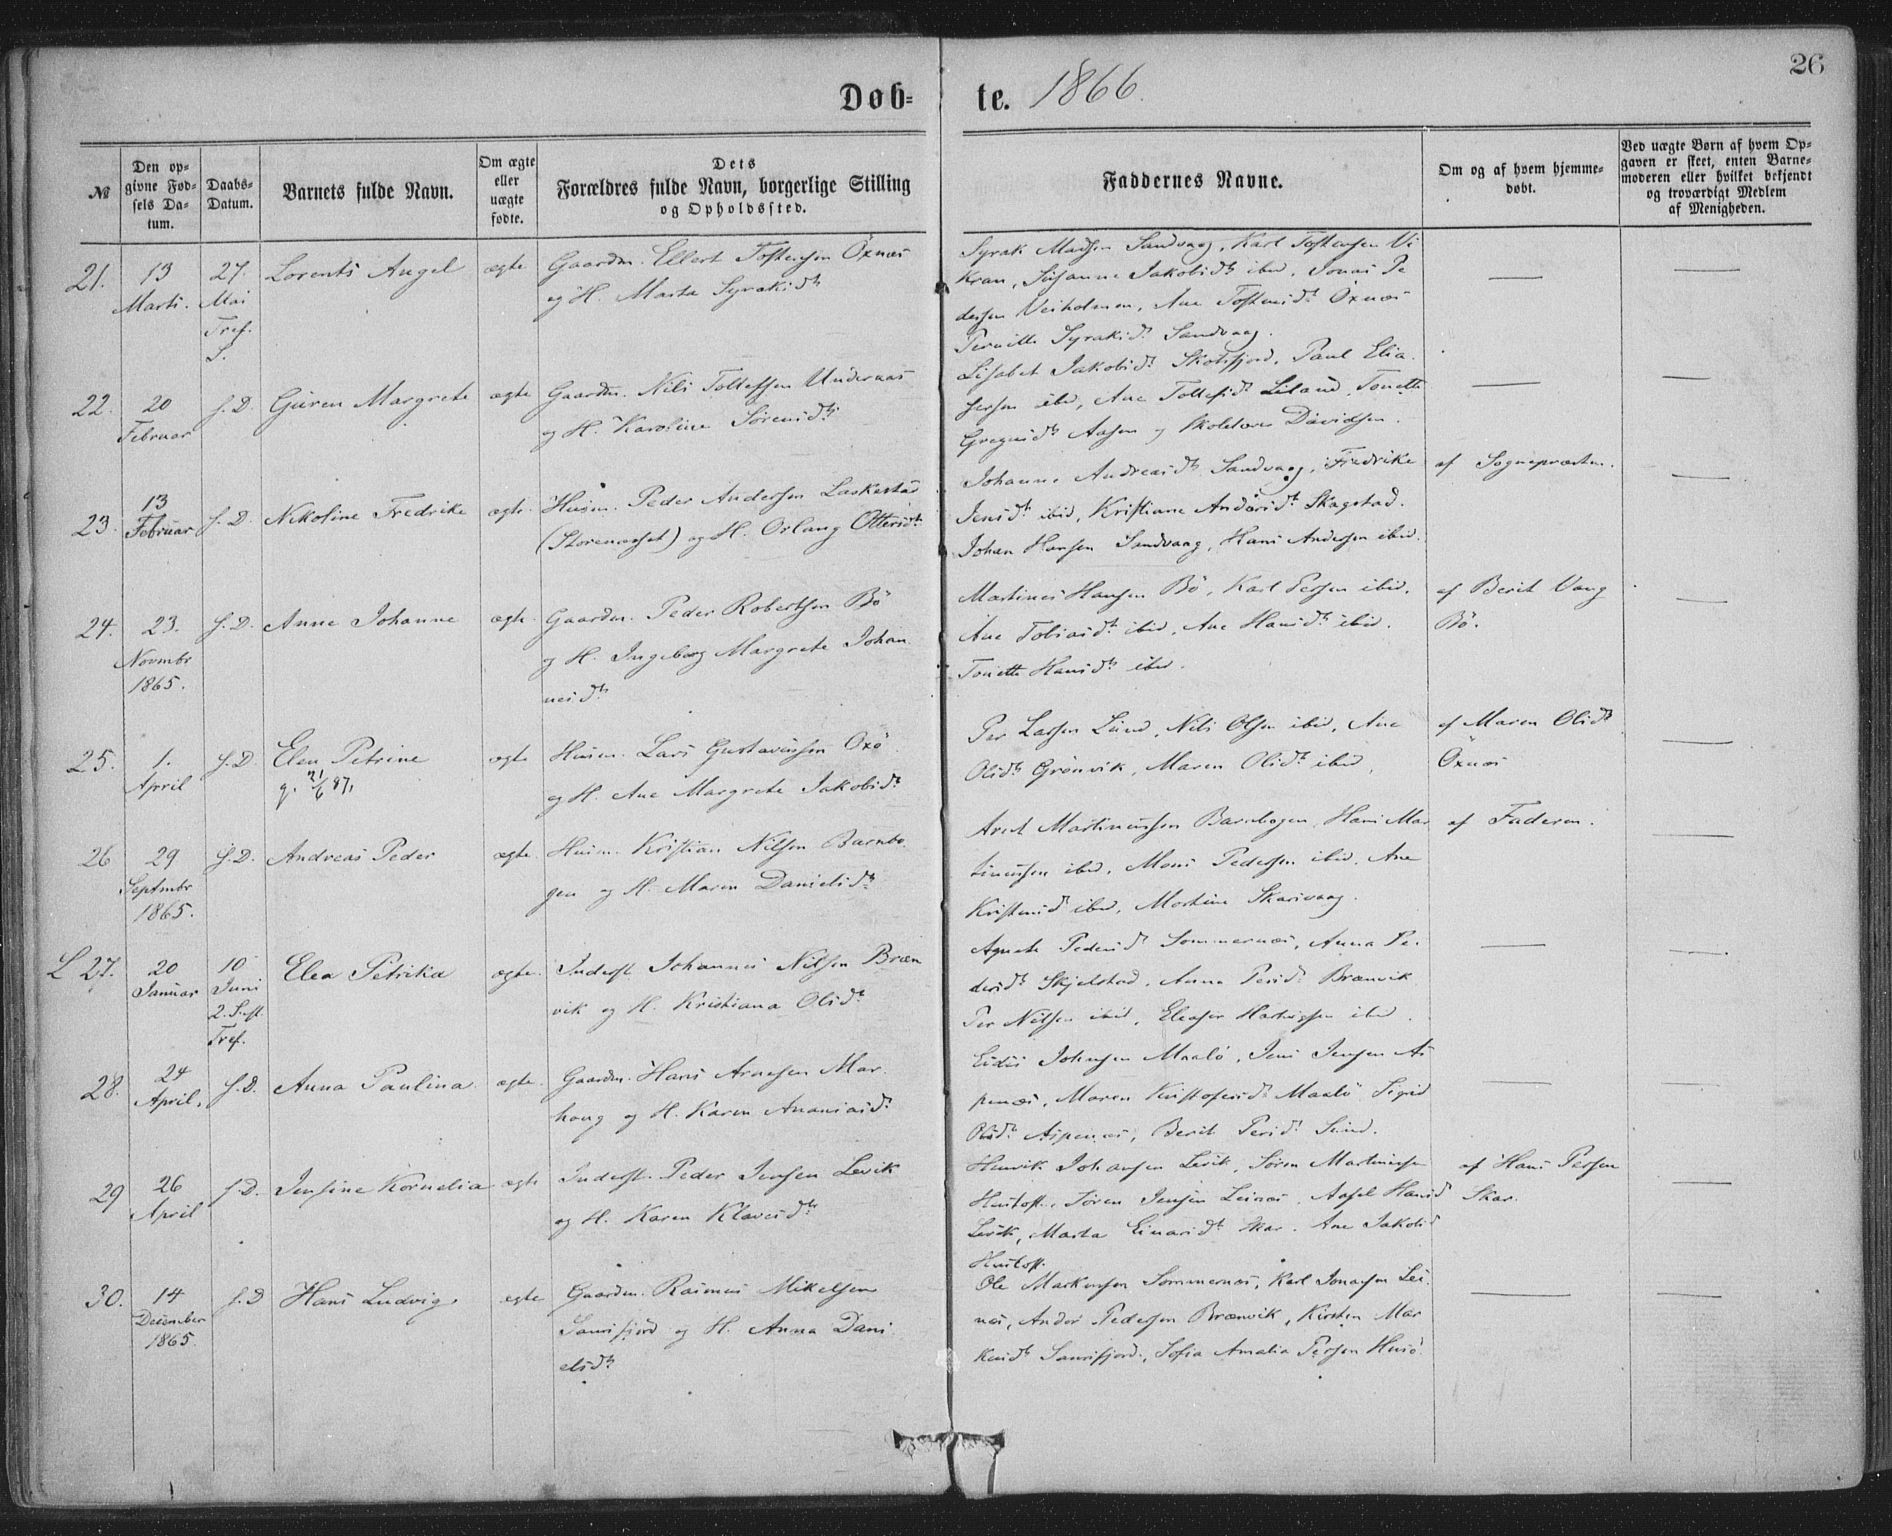 26
Døb= te. 1866.
№
Den opgivne Fødsels Datum.
Daabs-Datum.
Barnets fulde Navn.
Om ægte eller uægte fødte.
Dets Forældres fulde Navn, borgerlige Stilling og Opholdssted.
Faddernes Navne.
Om og af hvem hjemmedøbt.
Ved uægte Børn af hvem Opgaven er skeet, enten Barnemoderen eller hvilket bekjendt og troværdigt Medlem af Menigheden.
21. 13 Marts. 27. Mai Tref. S. Lorents Angel ægte
Gaardm. Ellert Tostensen Öxnæs
og H. Marta Syraksdtr
Syrak Madsen Sandvaag, Karl Tostensen Vi
kran, Susanne Jakobsdtr ibid, Jonas Pe
dersen Veiholmen, Ane Tostensdtr Öxnæs
Pernille Syraksdr Sandvaag.
22. 20 Februar s. D. Guren Margrete ægte
Gaardm. Nils Tollefsen Undernæs
og H. Karoline Sörensdtr
Lisabet Jakobsdtr Skotsfjord, Paul Elia
sersen ibid, Ane Tollefsdtr Leland, Tonette
Gregusdtr Aasen og Skolelærer Davidsen.
23. 13 Februar s. D. Nikoline Fredrike ægte
Husm. Peder Andersen Laskestad
(Storenæsset) og H. Orlaug Ottersdtr
Johanne Andreasdtr Sandvaag, Fredrike
Jensdtr ibid, Kristiane Andörsdtr Skagstad.
Johan Hansen Sandvaag, Hans Andersen ibid.
af Sognepræsten.
24. 23. Novmbr 1865. s. D. Anne Johanne ægte
Gaardm. Peder Robertsen Bö
og H. Ingeborg Margrete Johan
nesdtr
Martines Hansen Bö, Karl Persen ibid.
Ane Tobiasdtr ibid, Ane Hansdtr ibid.
Tonette Hansdtr ibid.
af Berit Vang
Bö.
25. 1. April s. D. Elen Petrine ægte
g. 21/6 87,
Husm. Lars Gustavussen Oxö
og H. Ane Margrete Jakobsdtr
Per Larsen Lund, Nils Olsen ibid, Ane
Olsdtr Grönvik, Maren Olsdtr ibid,
af Maren Olsdtr
Öxnæs
26 29 Septmbr 1865. s. D. Andreas Peder ægte.
Husm. Kristian Nilsen Barnbo
gen og H. Maren Danielsdtr
Arnt Martinussen Barnbogen, Hans Mar
tinussen ibid, Mons Pedersen ibid, Ane
Kristensd ibid, Martine Skarsvaag.
af Faderen.
L 27. 20 Januar 10 Juni 2. S. ft. Tref. Elea Petrika ægte.
Inderst. Johannes Nilsen Bræn
vik og H. Kristiana Olsdr
Agnete Pedersd Sommernæs, Anna Pe
dersdtr Skjelstad, Anna Persdr Brænvik
Per Nilsen ibid, Eleaser Hartvigsen ibid.
28. 24 April. s. D. Anna Paulina ægte.
Gaardm. Hans Arnesen Mar
haug og H. Karen Ananiasdr
Eidis Johnsen Maalö, Jens Jensen As
penæs, Maren Kristofersdr Maalö, Sigrid
Olsdtr Aspenæs, Berit Persdr Sund.
29 26 April s. D. Jensine Kornelia ægte
Inderst. Peder Jensen Levik
og H. Karen Klausdtr
Henrik Johansen Levik, Sören Martinussen
Hustoft, Sören Jensen Leinæs, Aasel Hansd
Levik, Marta Einarsdtr Skar. Ane Jakobsd
Hustoft.
af Hans Persen
Skar.
30. 14 December 1865. s. D Hans Ludvig. ægte
Gaardm. Rasmus Mikelsen
Saursfjord og H. Anna Dani
elsdtr
Ole Markussen Sommernæs, Karl Jonassen Lei
næs, Andor Pedersen Brænvik, Kirsten Mar
kusdtr Saursfjord, Sofia Amalia Persen Husö